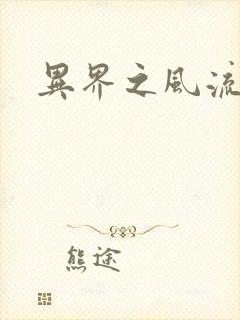 異界之風流
熊途